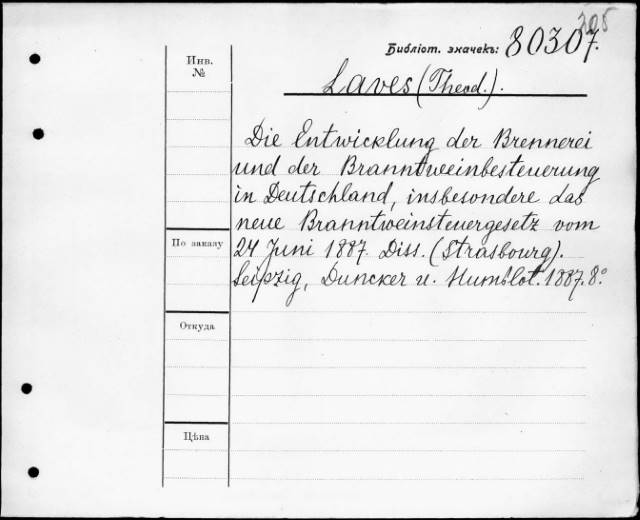 305
Библіот. значекъ: 80307.
Инв.
№
Laves (Theod.).
Die Entwicklung der Brennerei
und der Branntweinbesteuerung
in Deutschland, insbesondere das
neue Branntweinsteuergesetz vom
24 Juni 1887. Diss. (Strasbourg).
Leipzig, Duncker u. Humblot. 1887. 8.°
По заказу
Откуда
Цѣна